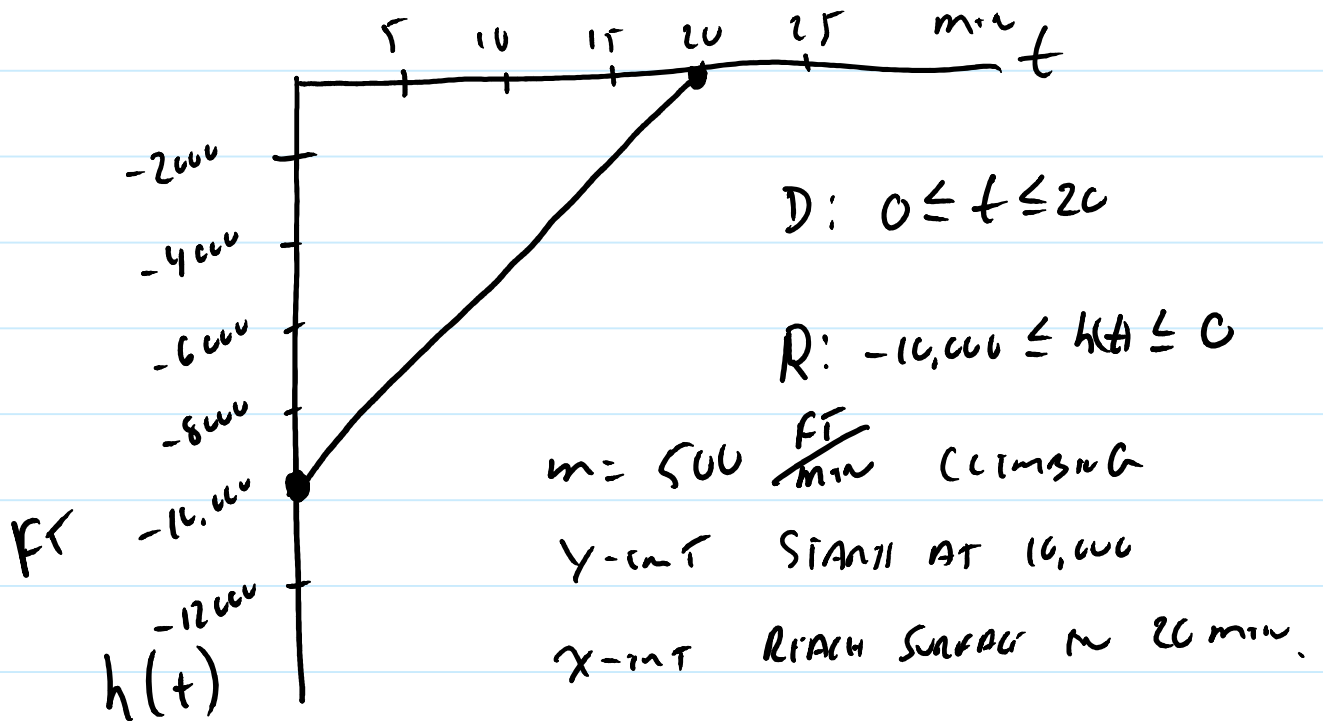 5 10 15 20 25 min t
-2000
-4000
-6000
-8000
-10,000
-12000
FT
h(t)
D: 0 ≤ t ≤ 20
R: -10,000 ≤ h(t) ≤ 0
m = 500 FT/min CLIMBING
Y-INT STARTS AT 10,000
X-INT REACH SURFACE IN 20 MIN.